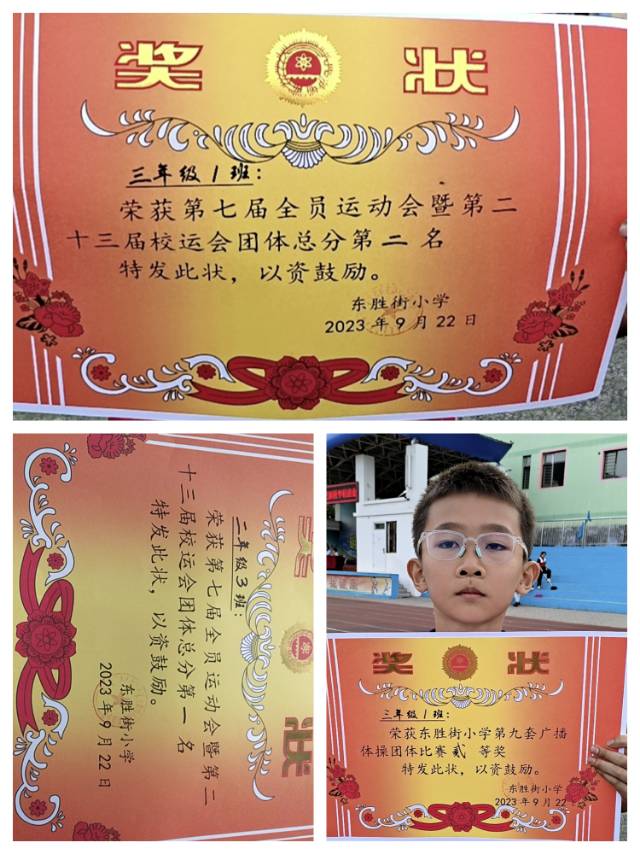 奖 状
三年级1班：
荣获第七届全员运动会暨第二
十三届校运会团体总分第二名
特发此状，以资鼓励。
东胜街小学
2023年9月22日
奖 状
二年级3班：
荣获第七届全员运动会暨第二
十三届校运会团体总分第一名
特发此状，以资鼓励。
东胜街小学
2023年9月22日
奖 状
三年级1班：
荣获东胜街小学第九套广播
体操团体比赛贰 等奖
特发此状，以资鼓励。
东胜街小学
2023年9月22